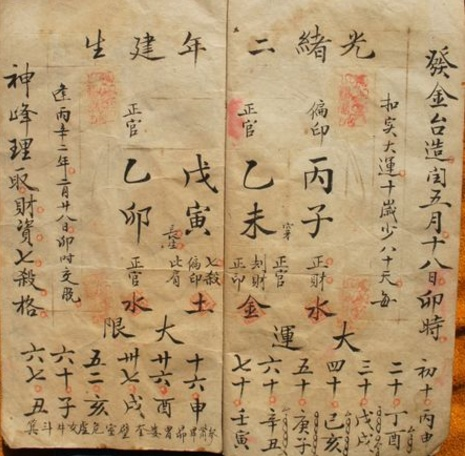 光緒二年建生
發金台造閏五月十八日卯時
扣实大運十歲少八十天每
偏印
丙子
正財
水
穿
正官
乙未
正官
刦財
正印
金
戊寅
長生
七殺
偏印
比肩
土
正官
乙卯
正官
水
逢丙辛二年二月廿八日卯時交脫
神峰理取財資七殺格
大運
初十丙申
二十丁酉
三十戊戌
四十己亥
五十庚子
六十辛丑
七十壬寅
大限
十六申
廿六酉
卅七戌
五二亥
六十子
六七丑
畢昴胃婁奎壁室危虛女牛斗箕